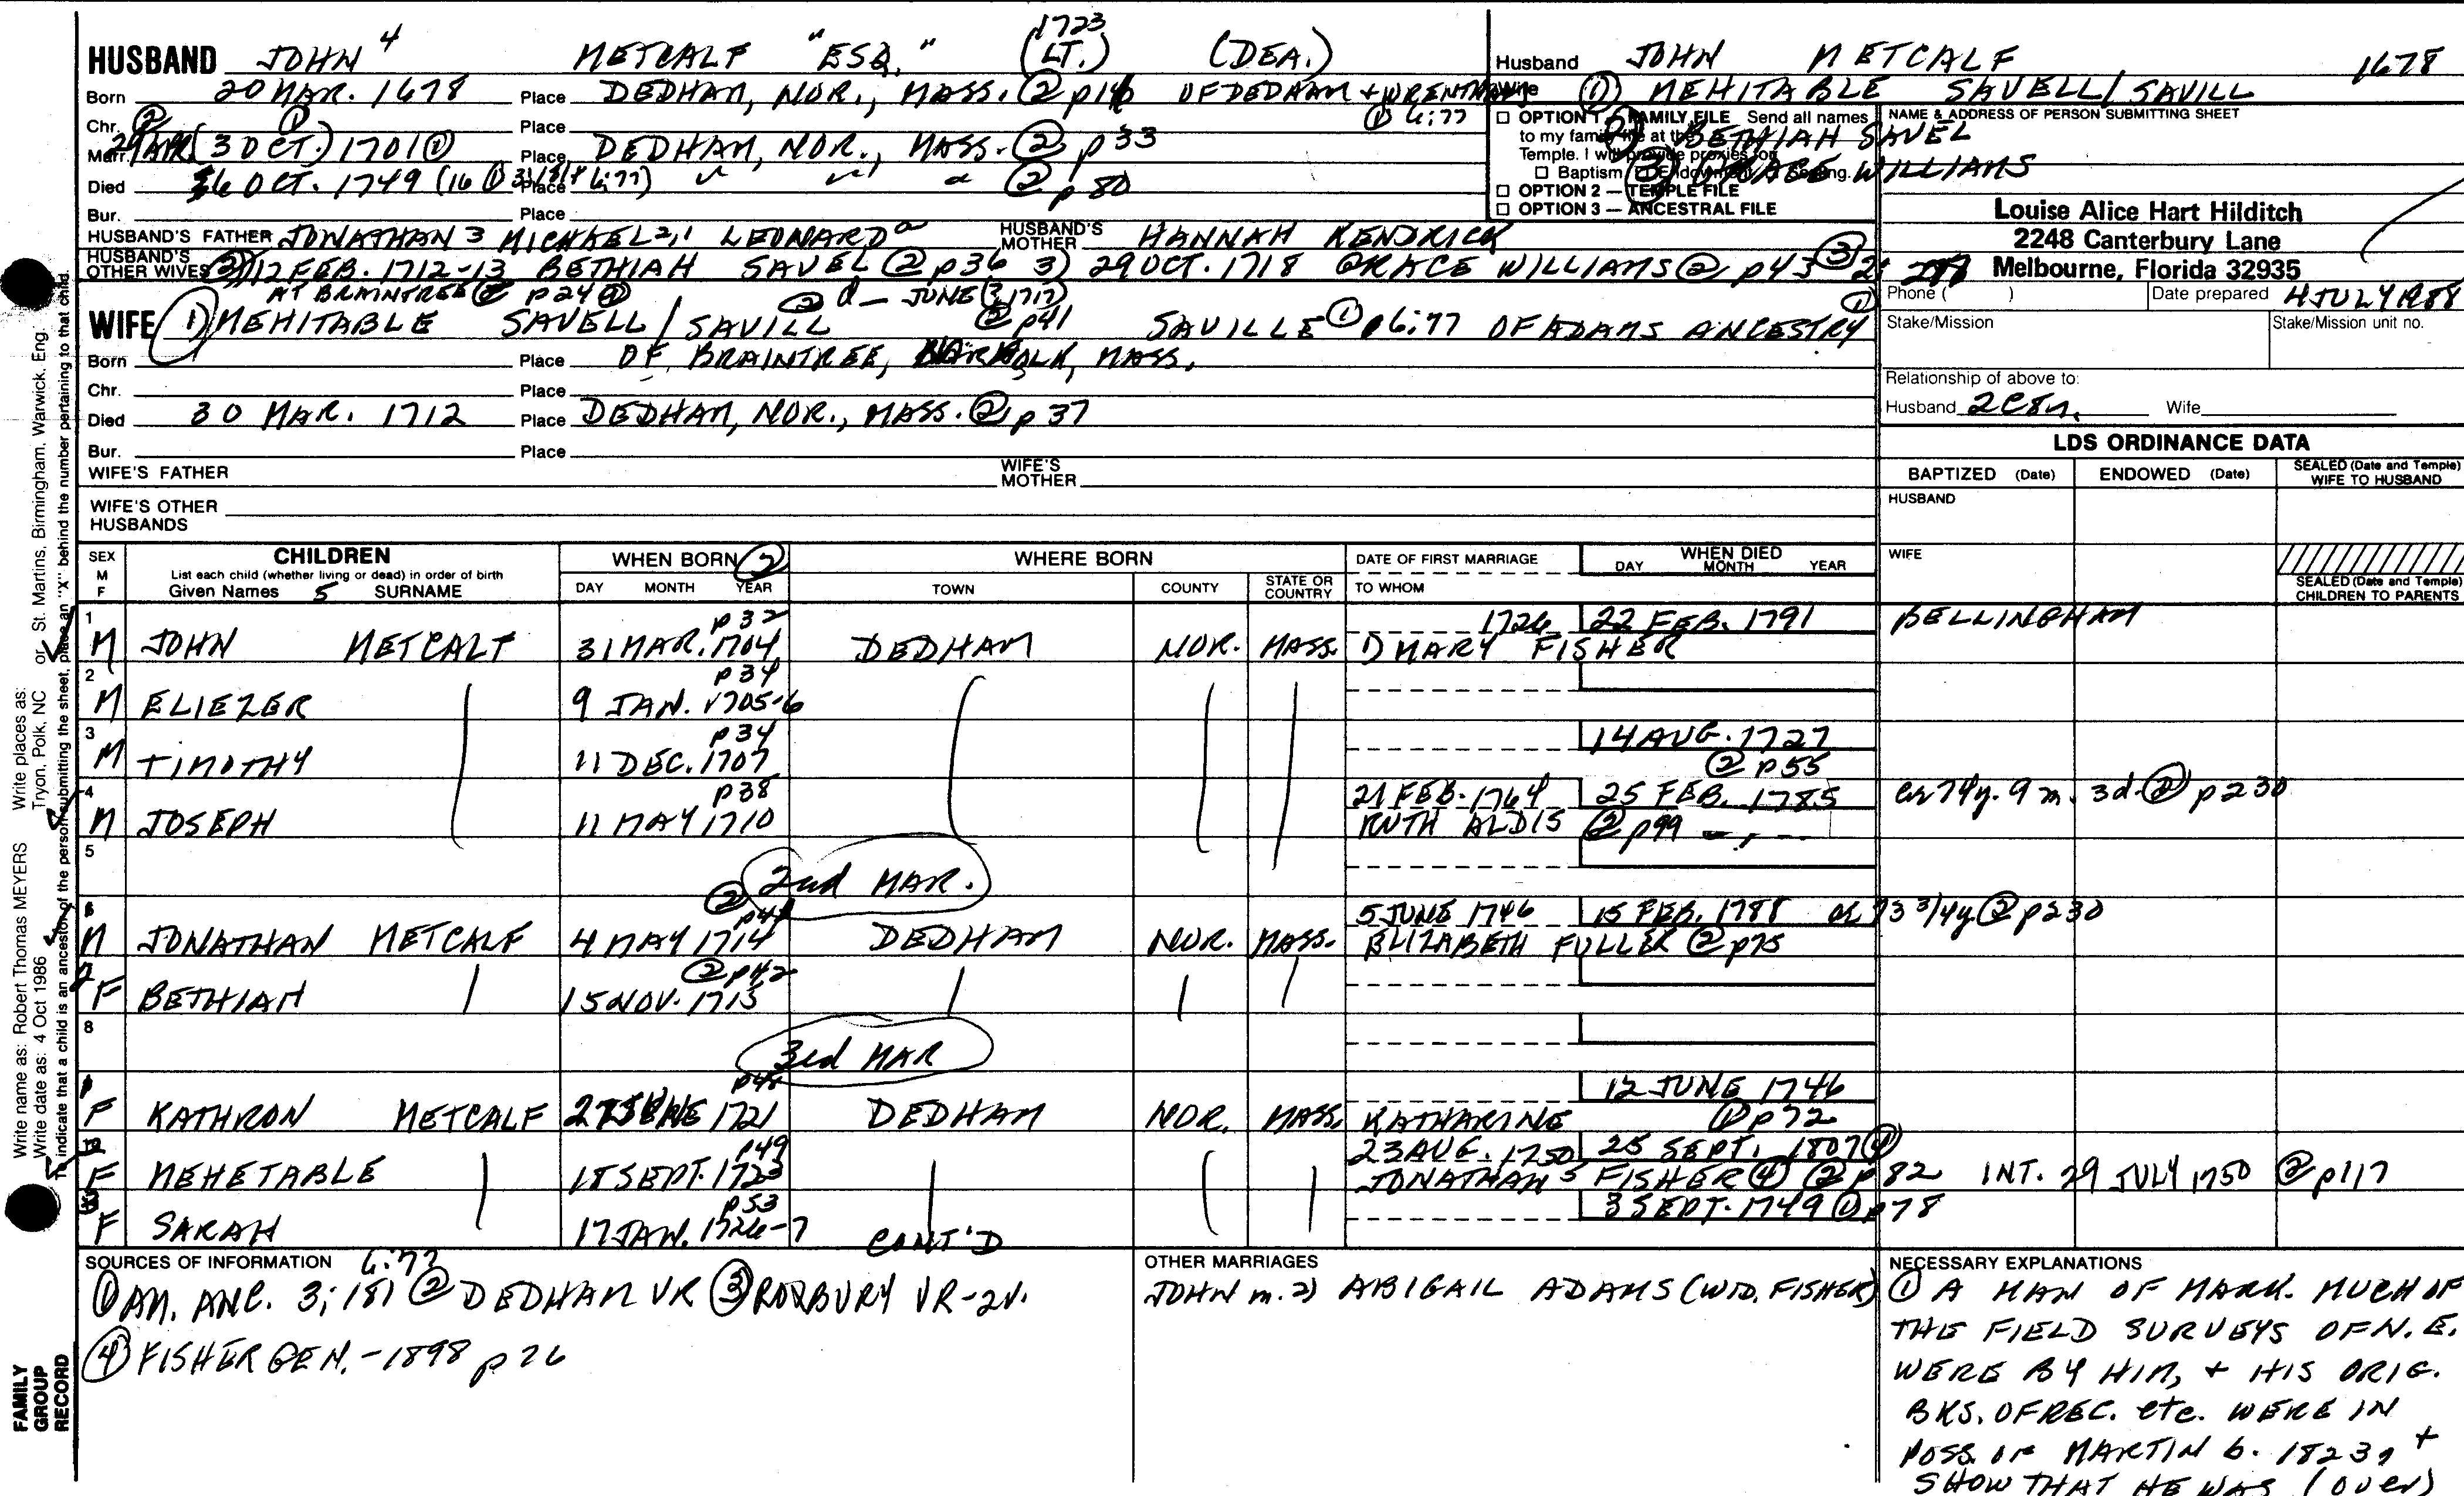 HUSBAND JOHN 4 METCALF "ESQ." (LT.) 1723 (DEA.)
Born 20 MAR. 1678 Place DEDHAM, NOR., MASS. ② p OF DEDHAM + WRENTHAM
① 6:77
Chr. Place
Marr. ② 29 APR (3 OCT.) ① 1701 ① Place DEDHAM, NOR., MASS. ② p 33
Died OCT. 1749 (16 ① 6:77) Place " " " ② p 80
Bur. Place
HUSBAND'S FATHER JONATHAN 3 MICHAEL 2,1 LEONARD a HUSBAND'S MOTHER HANNAH KENDRICK
HUSBAND'S OTHER WIVES 2) 12 FEB. 1712-13 BETHIAH SAVEL ② p36 3) 29 OCT. 1718 GRACE WILLIAMS ② p43 ③
AT BRAINTREE ② p24 ② d— JUNE 1717
WIFE ① MEHITABLE SAVELL / SAVILL ② p41 SAVILLE ① 6:77 OF ADAMS ANCESTRY ①
Born Place OF BRAINTREE, NORFOLK, MASS.
Chr. Place
Died 30 MAR. 1712 Place DEDHAM, NOR., MASS. ② p 37
Bur. Place
WIFE'S FATHER WIFE'S MOTHER
WIFE'S OTHER HUSBANDS
Husband JOHN METCALF 1678
Wife ① MEHITABLE SAVELL / SAVILL
2) BETHIAH SAVEL
③ GRACE WILLIAMS
☐ OPTION 1 — FAMILY FILE Send all names
to my family file at the
Temple. I will provide proxies for
☐ Baptism ☐ Endowment ☐ Sealing.
☐ OPTION 2 — TEMPLE FILE
☐ OPTION 3 — ANCESTRAL FILE
NAME & ADDRESS OF PERSON SUBMITTING SHEET
Louise Alice Hart Hilditch
2248 Canterbury Lane
Melbourne, Florida 32935
Phone ( ) Date prepared 4 JULY 1988
Stake/Mission Stake/Mission unit no.
Relationship of above to:
Husband Wife
LDS ORDINANCE DATA
BAPTIZED (Date) ENDOWED (Date) SEALED (Date and Temple) WIFE TO HUSBAND
HUSBAND
WIFE
SEALED (Date and Temple) CHILDREN TO PARENTS
SEX M F CHILDREN List each child (whether living or dead) in order of birth Given Names 5 SURNAME
WHEN BORN ② DAY MONTH YEAR
WHERE BORN TOWN COUNTY STATE OR COUNTRY
DATE OF FIRST MARRIAGE TO WHOM
WHEN DIED DAY MONTH YEAR
1 p32 1726 22 FEB. 1791 BELLINGHAM
M JOHN METCALF 31 MAR. 1704 DEDHAM NOR. MASS. 1) MARY FISHER
2 p34
M ELIEZER 9 JAN. 1705-6
3 p34 14 AUG. 1727
M TIMOTHY 11 DEC. 1707 ② p55
4 p38 21 FEB. 1764 25 FEB. 1785 ae 74y. 9 m. 3d. ② p230
M JOSEPH 11 MAY 1710 RUTH ALDIS ② p99
5
2nd MAR.
6 ② p41 5 JUNE 1746 15 FEB. 1788 ae 73 3/4y. ② p230
M JONATHAN METCALF 4 MAY 1714 DEDHAM NOR. MASS. ELIZABETH FULLER ② p75
② p42
F BETHIAH 15 NOV. 1715
8
3rd MAR
12 JUNE 1746
F KATHRON METCALF 1721 DEDHAM NOR. MASS. KATHARINE ① p72
p49 23 AUG. 1750 25 SEPT. 1807 ④
F MEHETABLE 18 SEPT. 1723 JONATHAN 5 FISHER ④ ② p82 INT. 29 JULY 1750 ② p117
p53 3 SEPT. 1749 ① p78
F SARAH 17 JAN. 1726-7 CONT'D
SOURCES OF INFORMATION 6:77
① AM. ANC. 3; 181 ② DEDHAM VR ③ ROXBURY VR-2V.
④ FISHER GEN. - 1898 p 26
OTHER MARRIAGES
JOHN m. 2) ABIGAIL ADAMS (WID. FISHER)
NECESSARY EXPLANATIONS
① A MAN OF MARK. MUCH OF
THE FIELD SURVEYS OF N. E.
WERE BY HIM, + HIS ORIG.
BKS. OF REC. etc. WERE IN
POSS. OF MARTIN b. 1823, +
SHOW THAT HE WAS (over)
Write name as: Robert Thomas MEYERS Write places as: Tryon, Polk, NC or St. Martins, Birmingham, Warwick, Eng.
Write date as: 4 Oct 1986
To indicate that a child is an ancestor of the person submitting the sheet, place an "X" behind the number pertaining to that child.
FAMILY GROUP RECORD